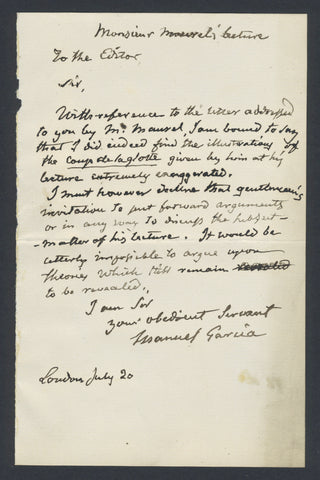 Monsieur Maurel's lecture
To the Editor
Sir,
With reference to the letter addressed
to you by Mr. Maurel, I am bound to say
that I did indeed find the illustrations of
the coup de la glotte given by him at his
lecture extremely exaggerated.
I must however decline that gentleman's
invitation to put forward arguments
or in any way to discuss the subject-
-matter of his lecture. It would be
utterly impossible to argue upon
theories which still remain
to be revealed.
I am Sir
your obedient Servant
Manuel Garcia
London July 20